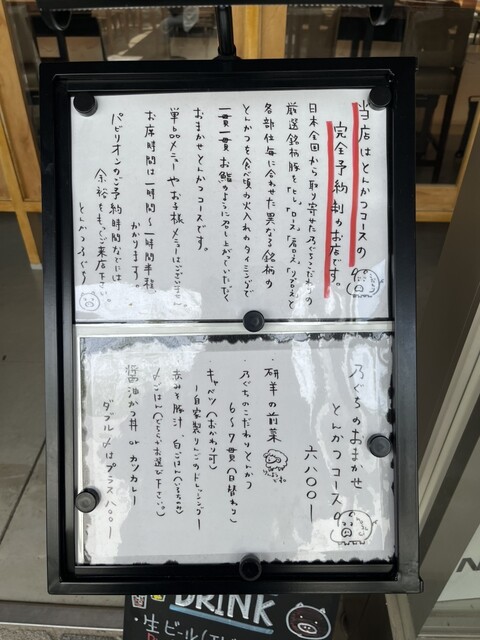 当店はとんかつコースの
完全予約制のお店です。
日本全国から取り寄せた乃ぐちこだわりの
厳選銘柄豚、「ヒレ、ロース、肩ロース、リブロースと
各部位毎に合わせた異なる銘柄の
とんかつを食べ頃の火入れのタイミングで
一貫一貫お鮨のように召し上がっていただく
おまかせとんかつコースです。
単品メニューやお子様メニューはございません
お席時間は一時間〜一時間半程
かかります。
パビリオンのご予約時間などには
余裕をもってご来店下さい。
とんかつ乃ぐち
乃ぐちのおまかせ
とんかつコース
六八〇〇ー
・前菜
・乃ぐちのこだわりとんかつ
6〜7貫(日替わり)
キャベツ(おかわり可)
〜自家製りんごのドレッシングー
赤みそ豚汁、白ごはん
〆ごはん(どちらかお選び下さい。)
醤油かつ丼 or カツカレー
ダブル〆はプラス八〇〇ー
DRINK
・生ビール